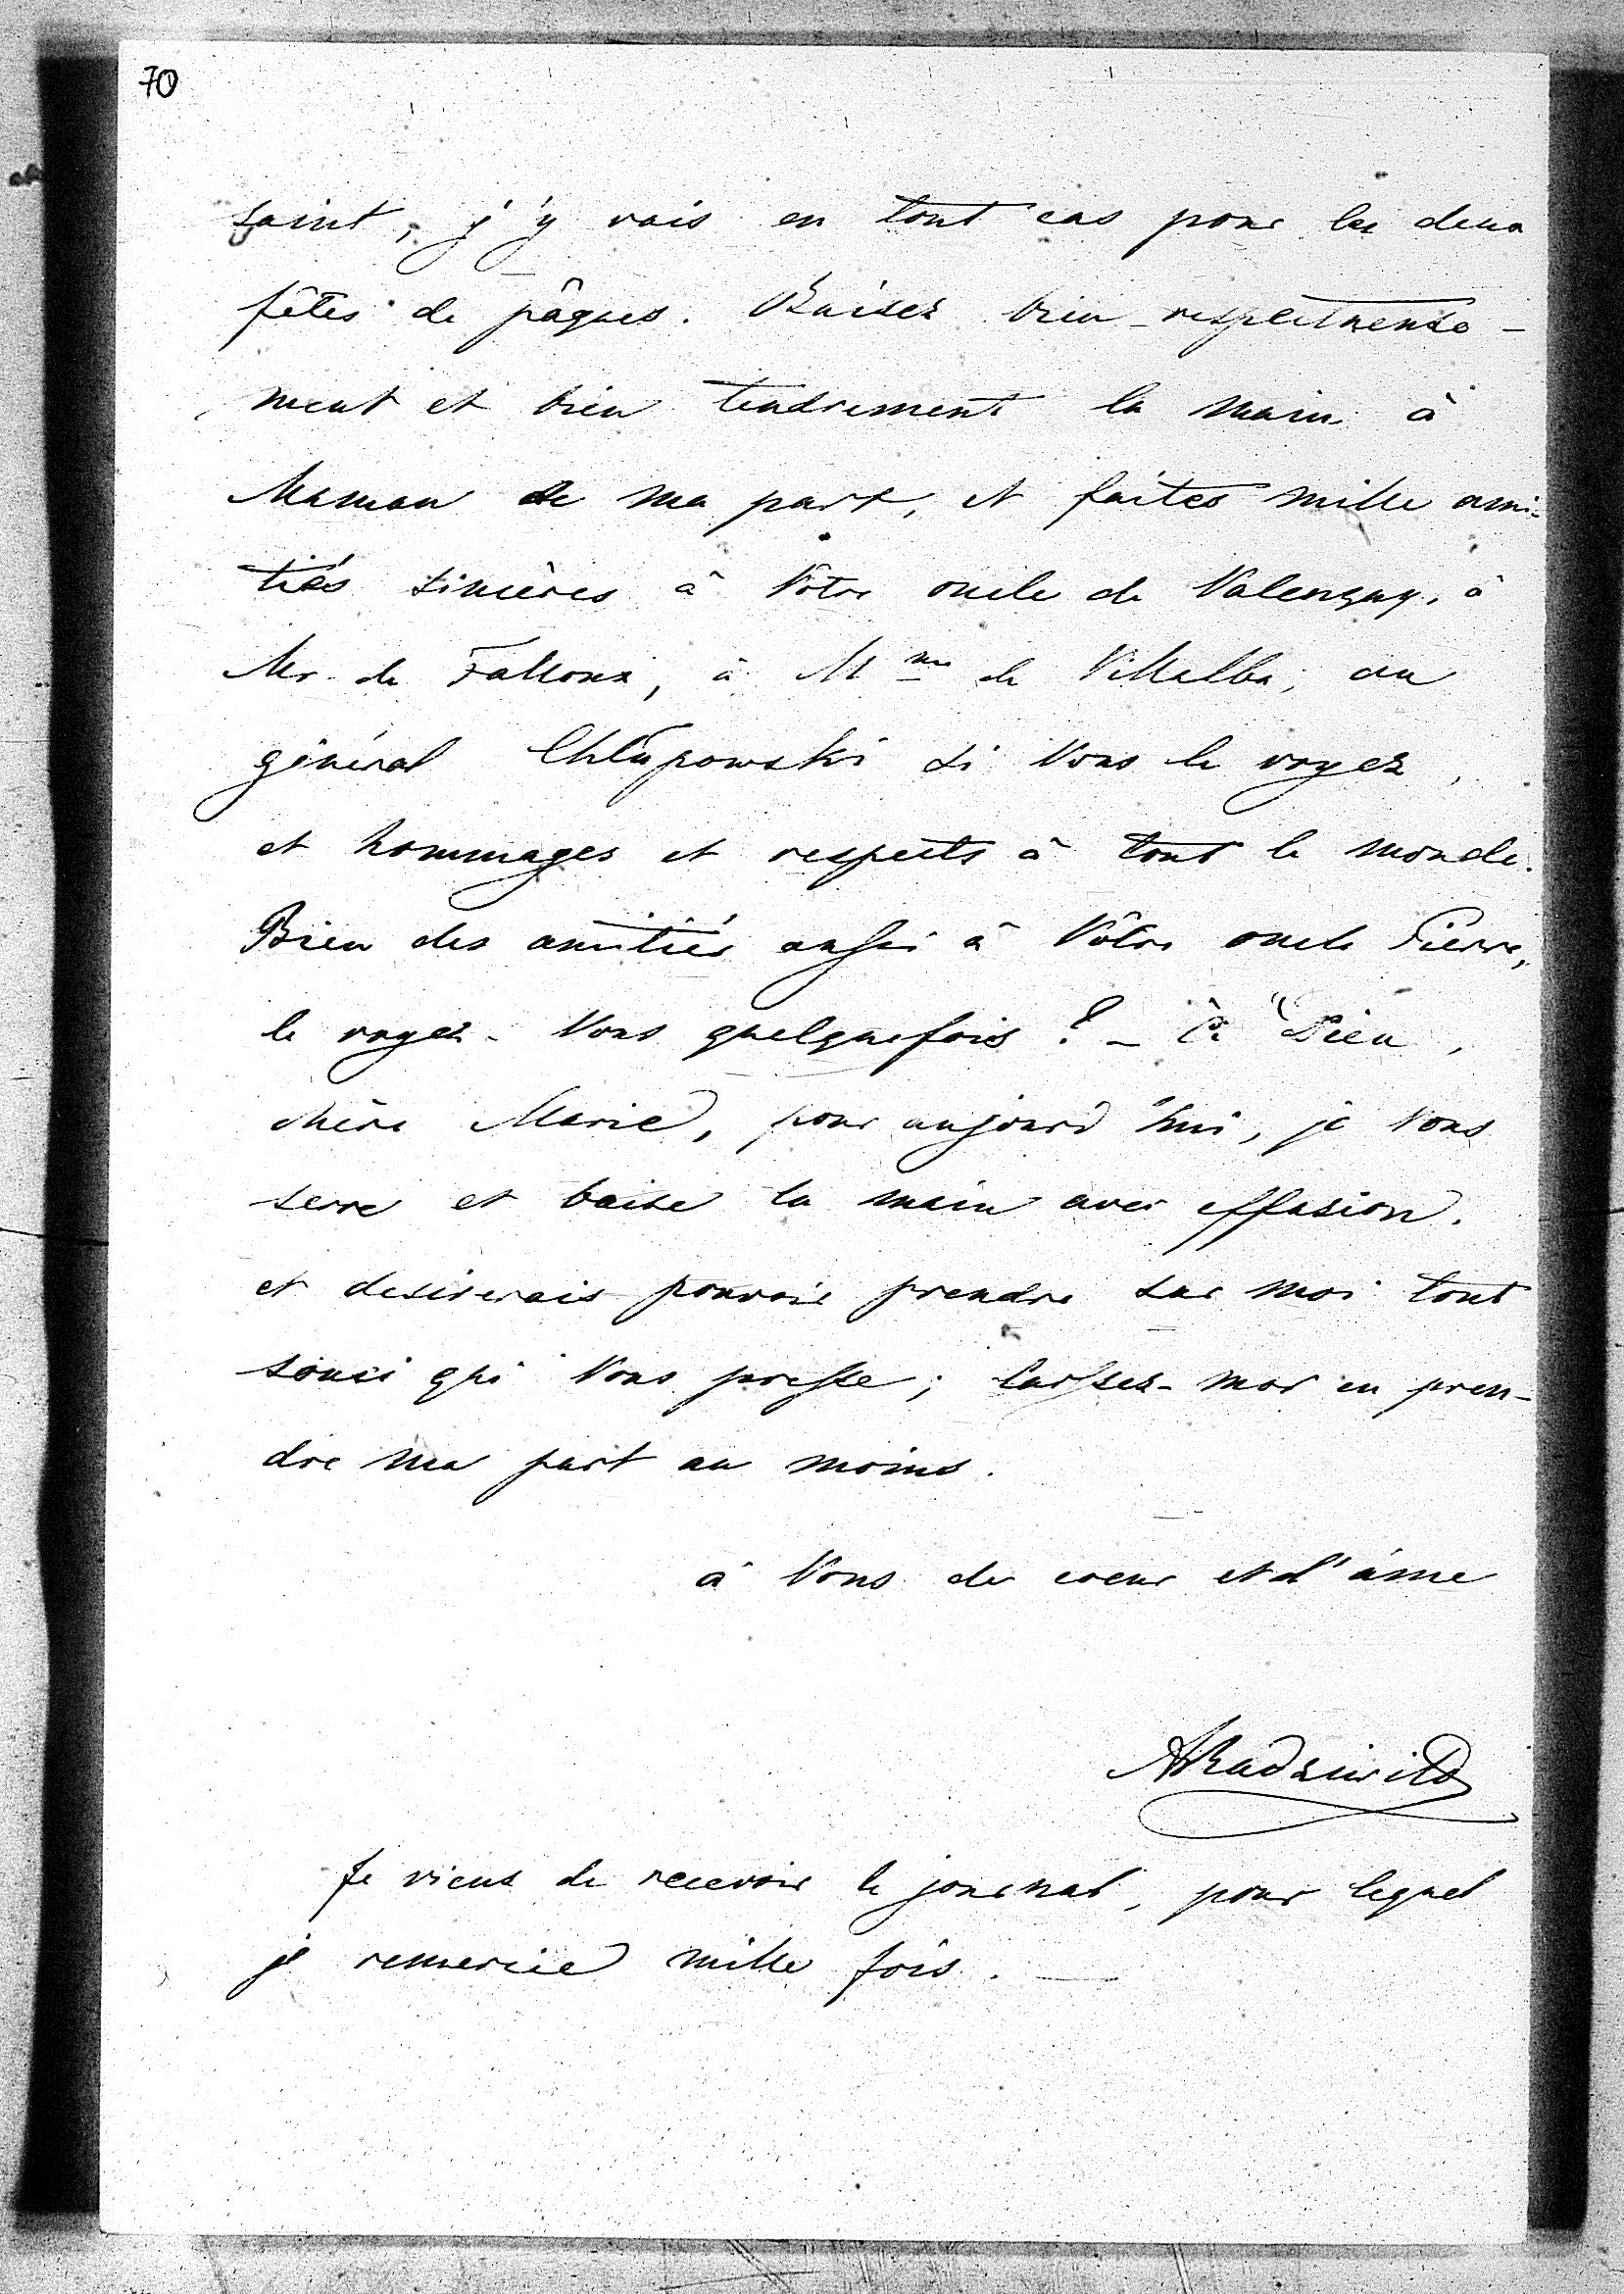 70
saint, j'y vais en tout cas pour les deux
fêtes de pâques. Baisez bien respectueuse-
ment et bien tendrement la main à
Maman de ma part, et faites mille ami-
tiés sincères à Vôtre oncle de Valençay, à
Mr. de Falloux, à Mme de Villalba, au
général Chłapowski si Vous le voyez,
et hommages et respects à tout le monde.
Bien des amitiés aussi à Vôtre oncle Pierre,
le voyez-Vous quelquefois? - à Dieu,
chère Marie, pour aujourd'hui, je Vous
serre et baise la main avec effusion.
et desirerais pouvoir prendre sur moi tout
souci qui Vous presse; laissez-moi en pren-
dre ma part au moins.
à Vous de coeur et d'âme
ARadziwiłł
Je viens de recevoir le journal, pour lequel
je remercie mille fois.